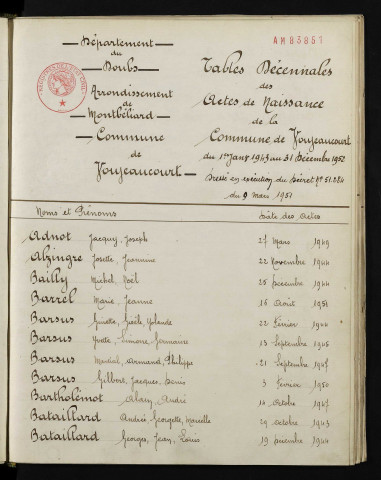 AM 83851
— Département —
du
— Doubs —
— Arrondissement —
de
— Montbéliard —
— Commune —
de
— Voujeaucourt. —
Tables Décennales
des
Actes de Naissance
de la
Commune de Voujeaucourt
du 1er Janv 1943 au 31 Décembre 1952
Dressé en exécution du Décret No 51.284
du 9 Mars 1951
Noms et Prénoms Date des Actes
Adnot Jacquy, Joseph 27 Mars 1949
Alzingre Josette, Jeannine 22 Novembre 1944
Bailly Michel Noël 25 Décembre 1944
Barrel Marie, Jeanne 16 Août 1951
Barsus Ginette, Gisèle, Yolande 22 Février 1944
Barsus Yvette, Simone, Germaine 13 Septembre 1945
Barsus Martial, Armand, Philippe 21 Septembre 1947
Barsus Gilbert, Jacques, Denis 3 Février 1950
Bartholémot Alain, André 14 Octobre 1947
Bataillard Andrée, Georgette, Marcelle 29 Octobre 1943
Bataillard Georges, Jean, Louis 19 Décembre 1944